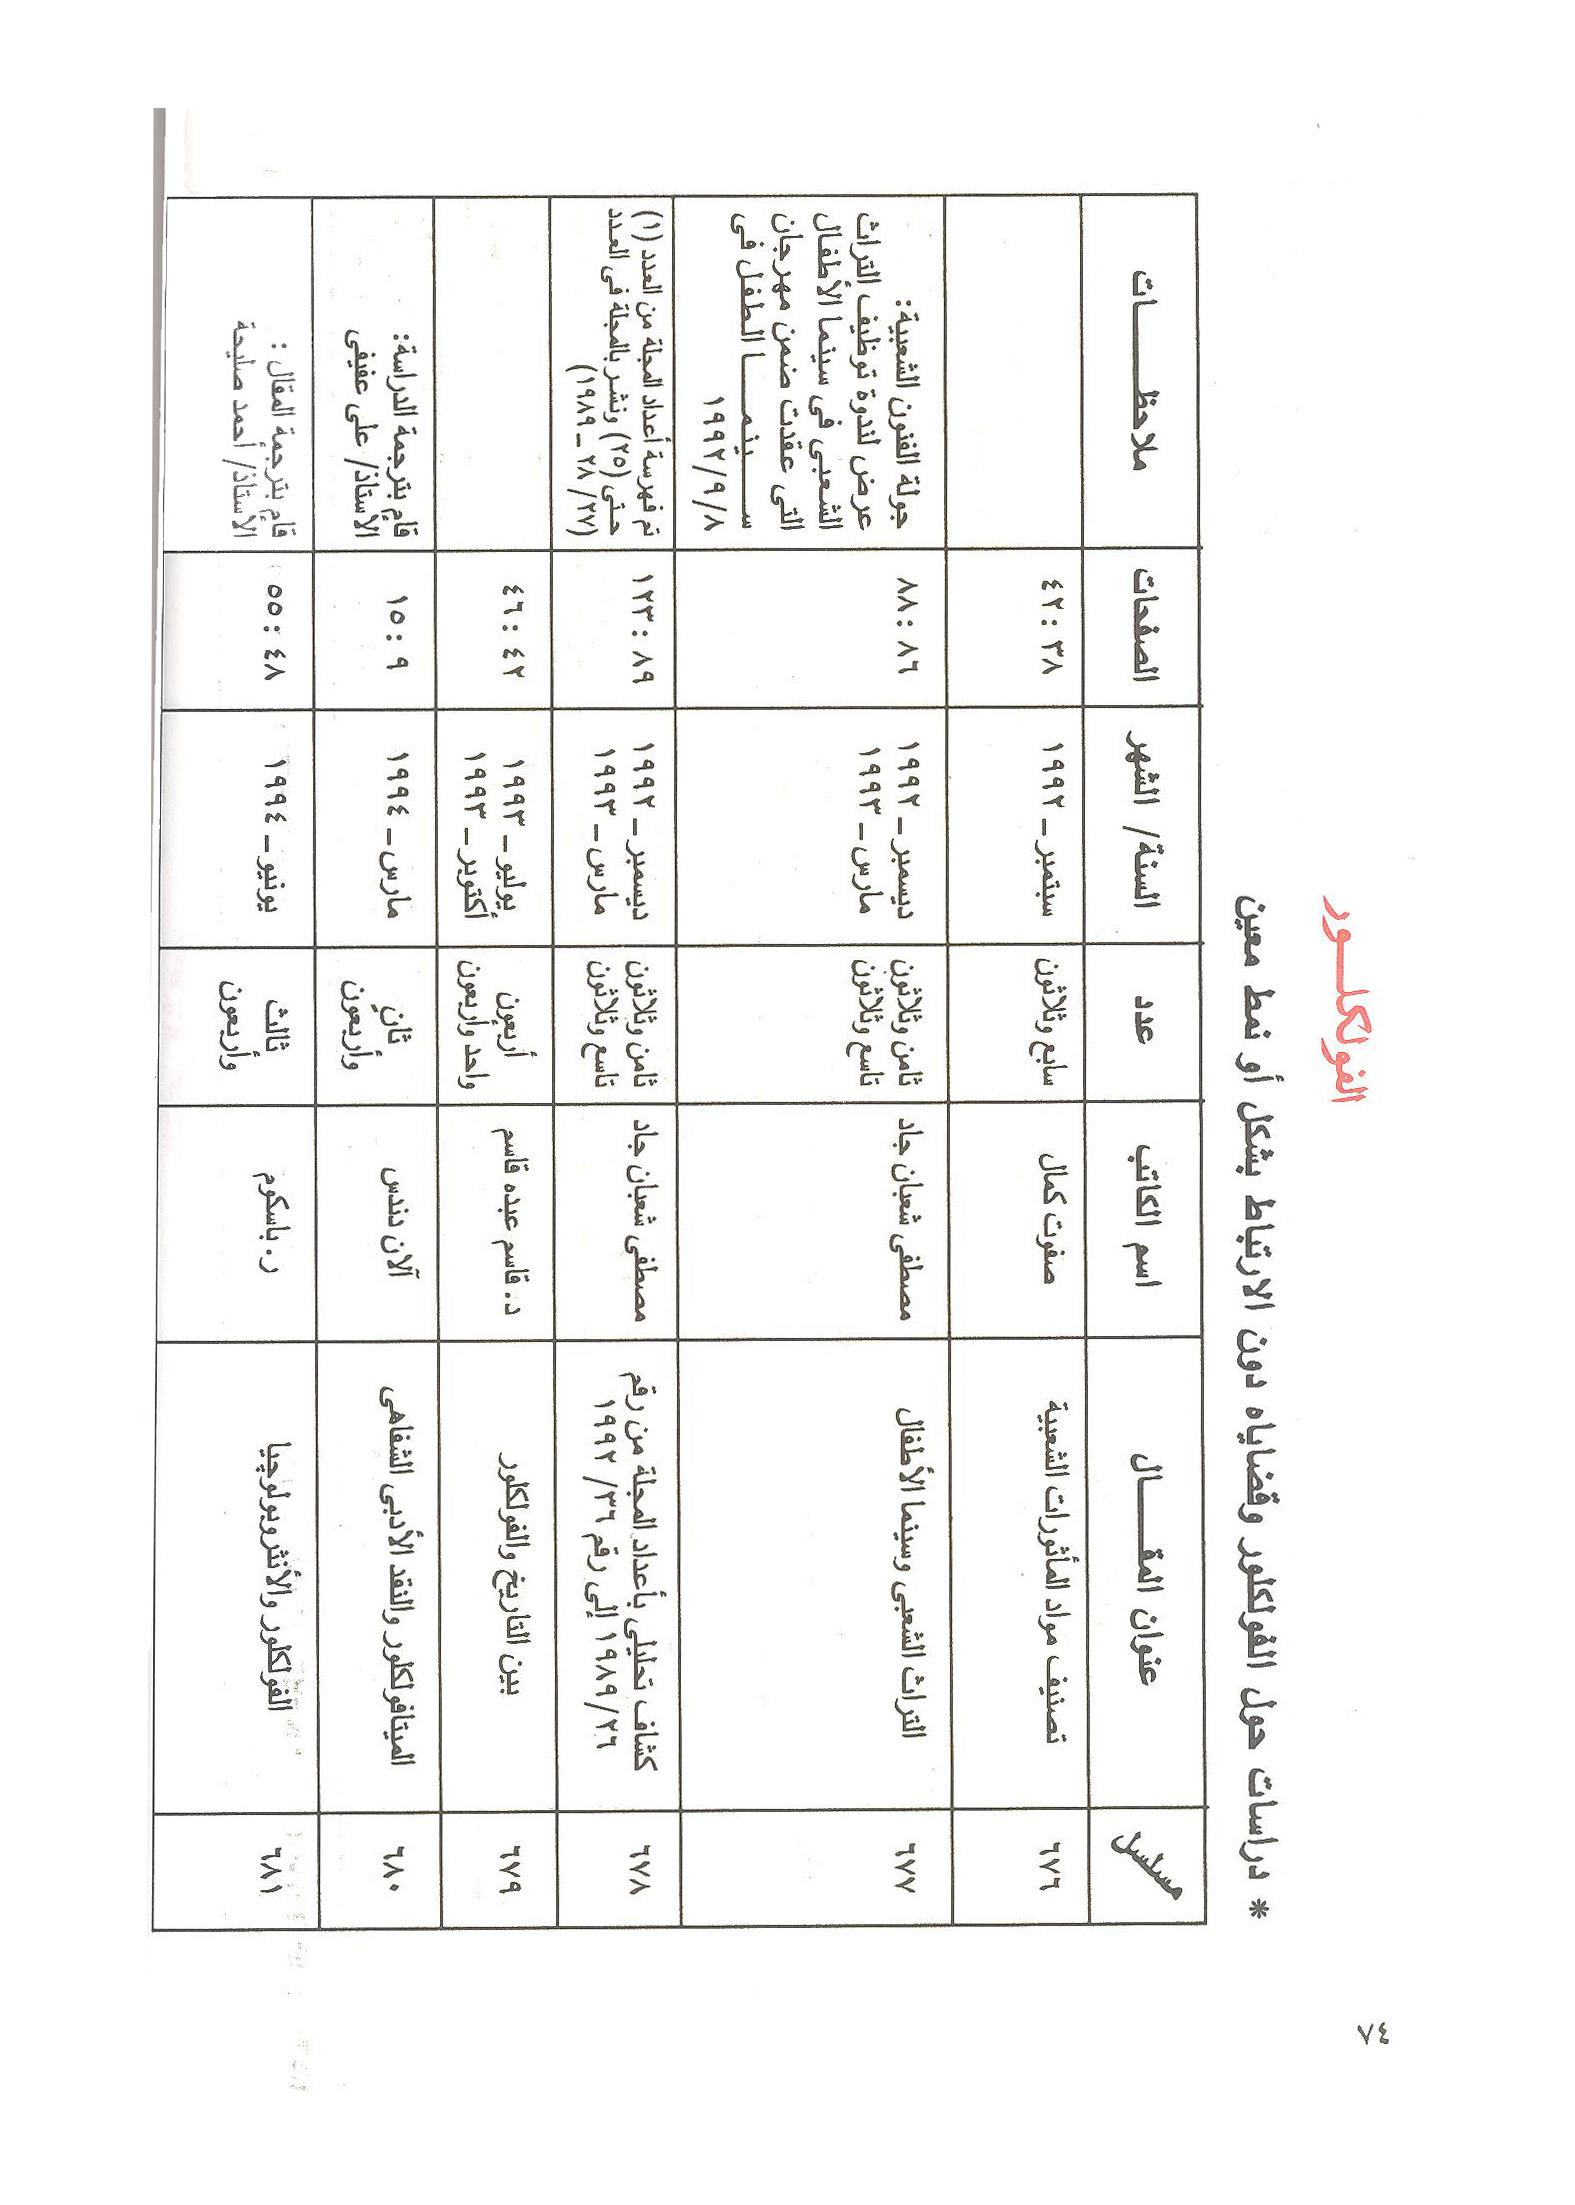 ٧٤
الفولكلـــور
* دراسات حول الفولكلور وقضاياه دون الارتباط بشكل أو نمط معين
مسلسل
عنوان المقـــــال
اسم الكاتب
عدد
السنة/ الشهر
الصفحات
ملاحظــــــات
٦٧٦
تصنيف مواد المأثورات الشعبية
صفوت كمال
سابع وثلاثون
سبتمبر ــ ١٩٩٢
٣٨ : ٤٢
٦٧٧
التراث الشعبى وسينما الأطفال
مصطفى شعبان جاد
ثامن وثلاثون
تاسع وثلاثون
ديسمبر ــ ١٩٩٢
مارس ــ ١٩٩٣
٨٦ : ٨٨
جولة الفنون الشعبية:
عرض لندوة توظيف التراث
الشعبى فى سينما الأطفال
التى عقدت ضمن مهرجان
ســـــينمـــــا الطفل فى
١٩٩٢/٩/٨
٦٧٨
كشاف تحليلى بأعداد المجلة من رقم
١٩٨٩/٢٦ إلى رقم ١٩٩٢/٣٦
مصطفى شعبان جاد
ثامن وثلاثون
تاسع وثلاثون
ديسمبر ــ ١٩٩٢
مارس ــ ١٩٩٣
٨٩ : ١٢٣
تم فهرسة أعداد المجلة من العدد (١)
حتى (٢٥) ونشر بالمجلة فى العدد
(٢٧/ ٢٨ ــ ١٩٨٩)
٦٧٩
بين التاريخ والفولكلور
د. قاسم عبده قاسم
أربعون
واحد وأربعون
يوليو ــ ١٩٩٣
أكتوبر ــ ١٩٩٣
٤٢ : ٤٦
٦٨٠
الميتافولكلور والنقد الأدبى الشفاهى
آلان دندس
ثانٍ
وأربعون
مارس ــ ١٩٩٤
٩ : ١٥
قام بترجمة الدراسة:
الأستاذ/ على عفيفى
٦٨١
الفولكلور والأنثروبولوچيا
ر. باسكوم
ثالث
وأربعون
يونيو ــ ١٩٩٤
٤٨ : ٥٥
قام بترجمة المقال :
الأستاذ/ أحمد صليحة